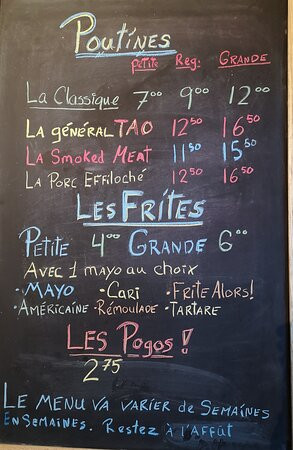 Poutines
petite Reg. Grande
La Classique 7.00 9.00 12.00
La général TAO 12.50 16.50
La Smoked Meat 11.50 15.50
La Porc Effiloché 12.50 16.50
Les Frites
Petite 4.00 Grande 6.00
Avec 1 mayo au choix
• Mayo • Cari • Frite Alors!
• Américaine • Rémoulade • Tartare
Les Pogos!
2.75
Le menu va varier de semaines
en semaines. Restez à l'affût